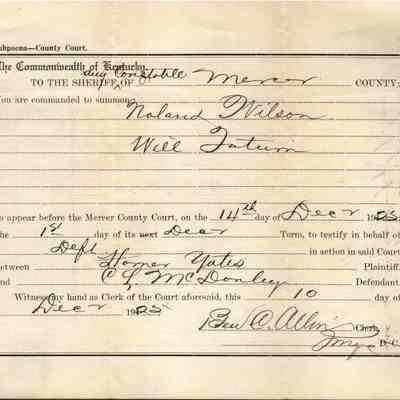 ubpoena—County Court.
The Commonwealth of Kentucky,
any Constable
TO THE SHERIFF OF Mercer COUNTY:
You are commanded to summon
Roland Wilson
Will Tatum
o appear before the Mercer County Court, on the 14th day of Decr 1925
he 1st day of its next Decr Term, to testify in behalf of
Deft in action in said Court
etween Homer Yates Plaintiff
nd C L McDonley Defendant.
Witness my hand as Clerk of the Court aforesaid, this 10 day of
Decr 1925
Ben C. Allin Clerk
D. C.